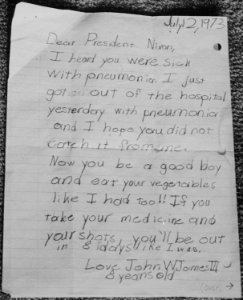 July 2, 1973
Dear President Nixon,
I heard you were sick
with pneumonia. I just
got out of the hospital
yesterday with pneumonia
and I hope you did not
catch it from me.
Now you be a good boy
and eat your vegetables
like I had too!! If you
take your medicine and
your shots, you'll be out
in 8 days like I was.
Love, John W. James III
8 years old
(over →